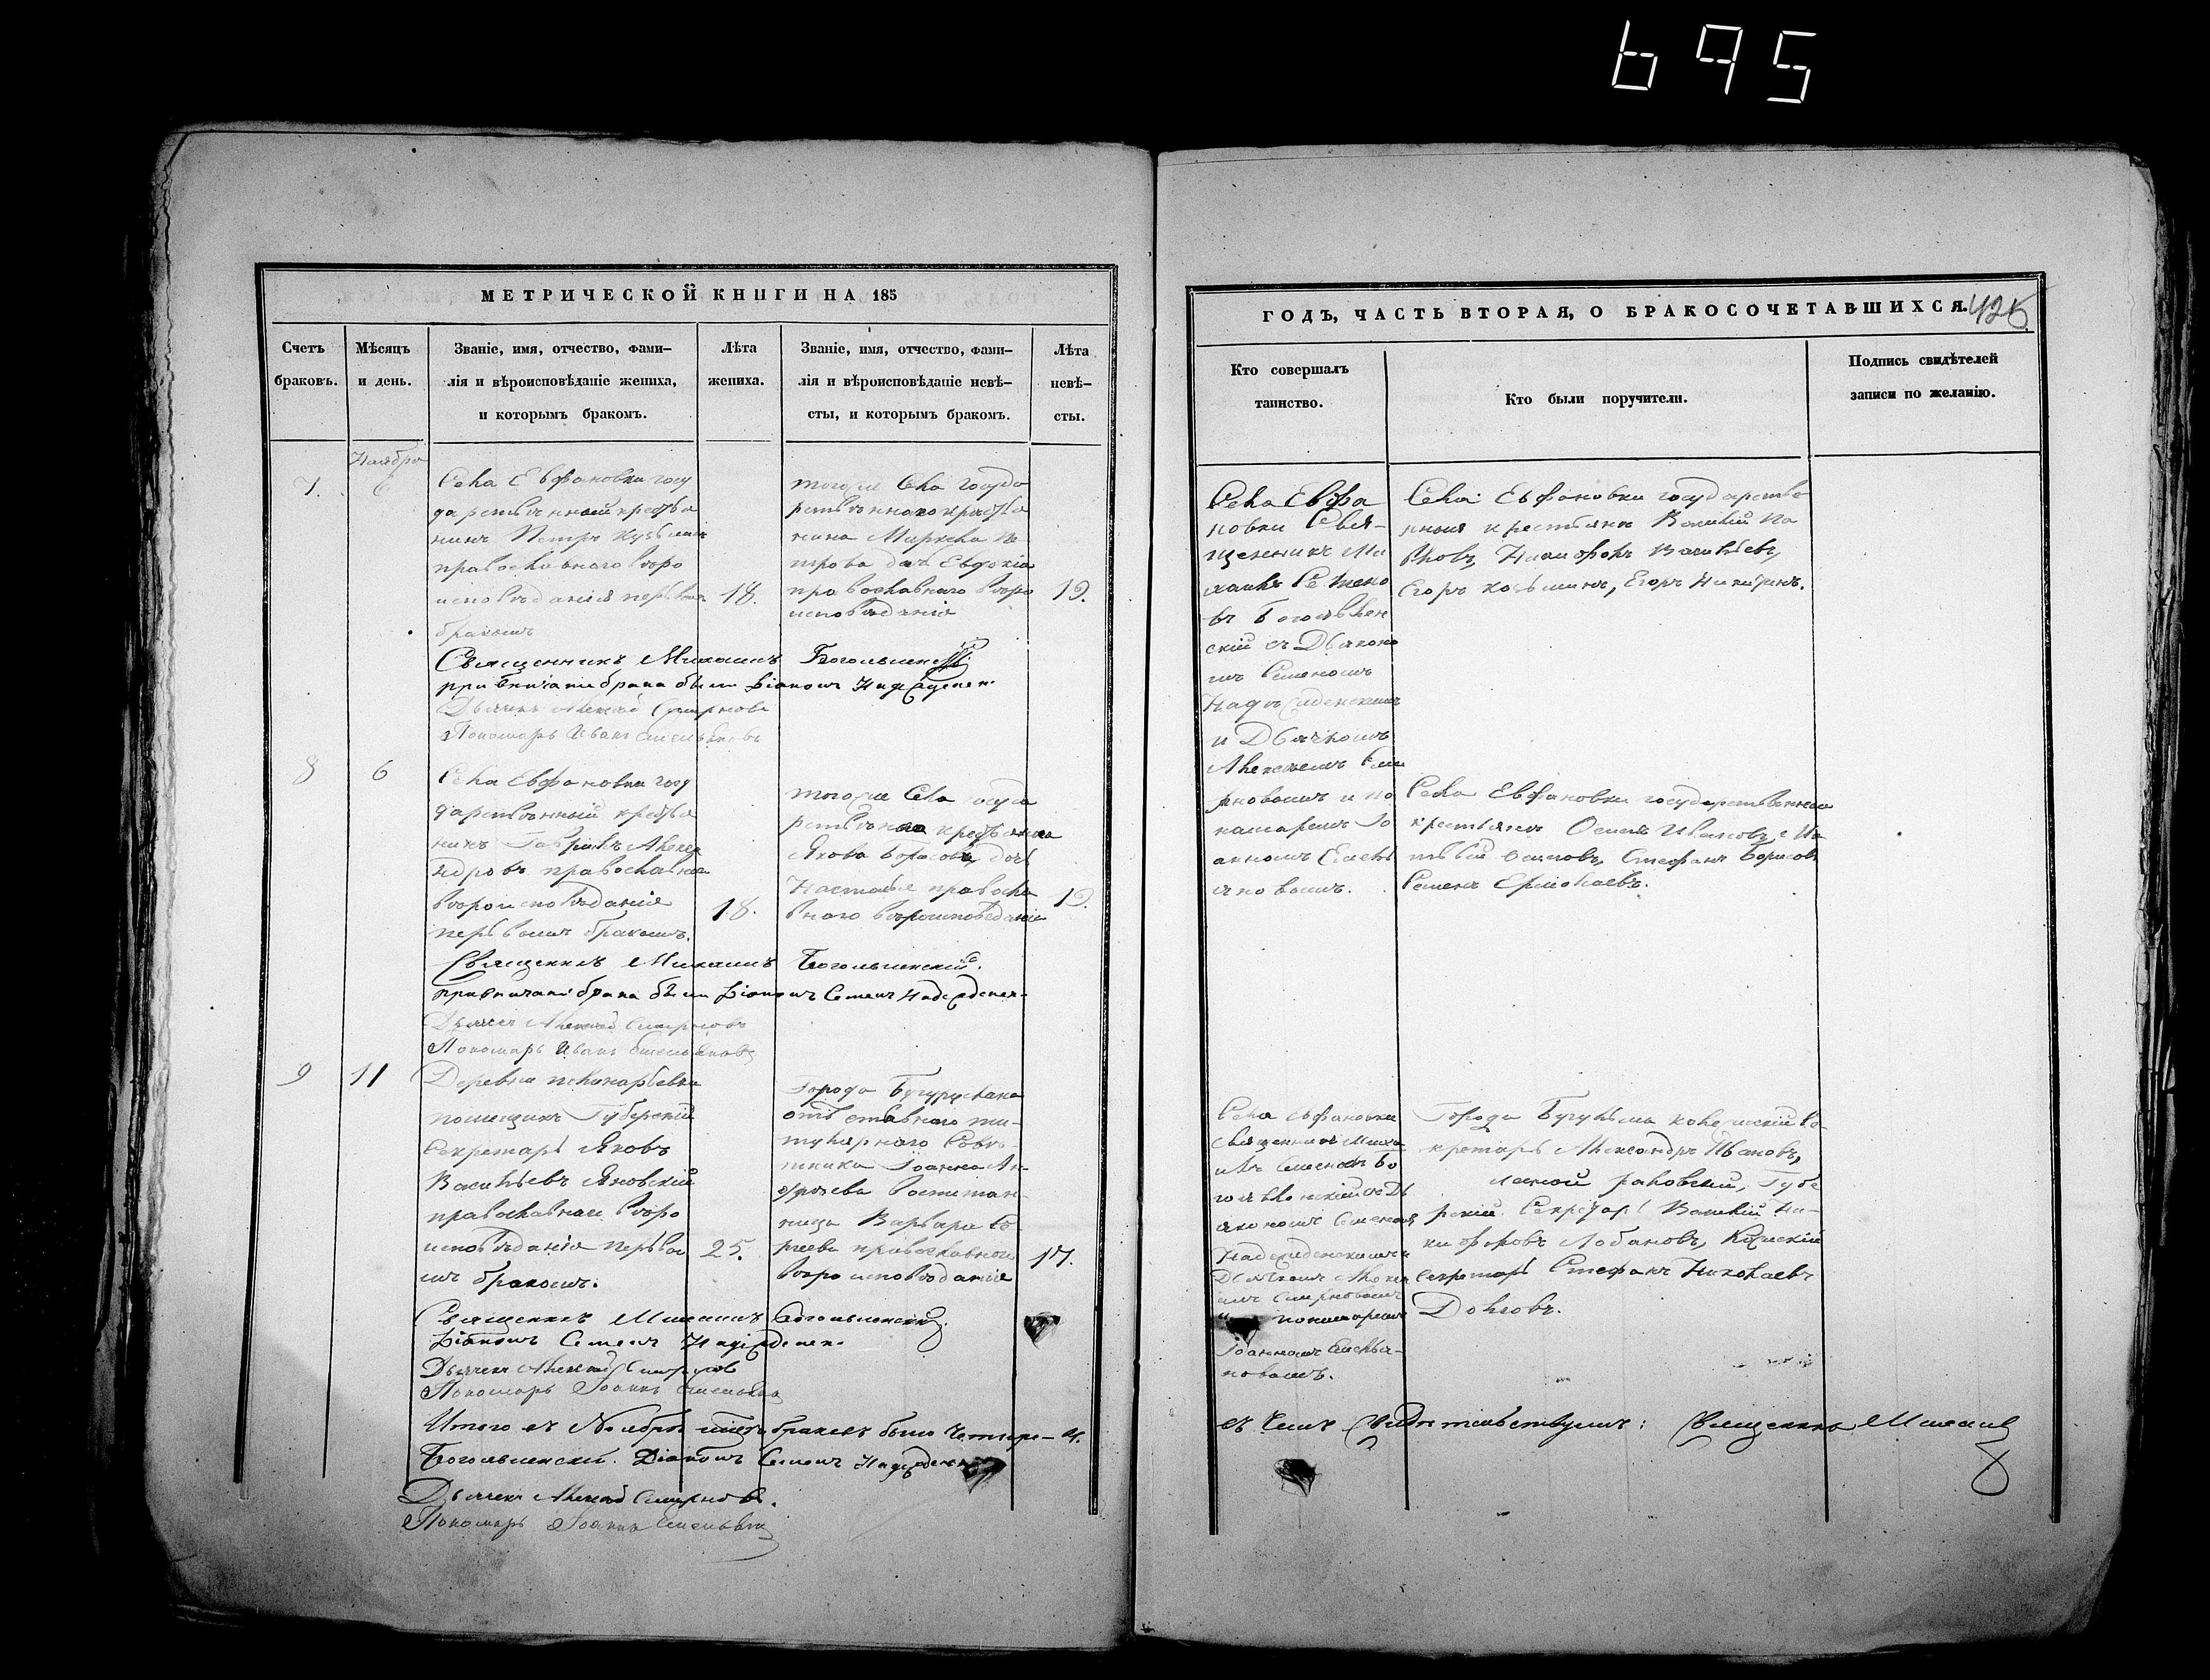 695
МЕТРИЧЕСКОЙ КНИГИ НА 185
Счетъ браковъ.
Мѣсяцъ и день.
Званіе, имя, отчество, фами-
лія и вѣроисповѣданіе жениха,
и которымъ бракомъ.
Лѣта жениха.
Званіе, имя, отчество, фами-
лія и вѣроисповѣданіе невѣ-
сты, и которымъ бракомъ.
Лѣта невѣ-
сты.
Ноября
7.
6
Села Евфановки госу
дарственный крестья
нинъ Петръ Кузьминъ
православнаго вѣро
исповѣданія первымъ
бракомъ
18.
тогоже Села госуда
рственнаго крестья
нина Маркела Пе
трова дочь Евдокія
православнаго вѣро
исповѣданія
19.
Священникъ Михаилъ Богоявленскій
при венчани брака были Діаконъ Надеждинск
Дьячекъ Алексѣй Смирновъ
Пономарь Иванъ Емельяновъ
8
6
Села Евфановки госу
дарственный крестья
нинъ Гаврилъ Алекса
ндровъ православнаго
вѣроисповѣданія
первымъ бракомъ.
18.
тогоже Села госуда
рственнаго крестьянина
Якова Борисова дочь
Настасья правосла
внаго вѣроисповеданія
19.
Священникъ Михаилъ Богоявленскій.
при венчани брака были Діаконъ Семенъ Надеждинск
Дьячекъ Алексѣй Смирновъ
Пономарь Иванъ Емельяновъ
9
11
Деревни
помещикъ Губернскій
Секретарь Яковъ
Васильевъ Яновскій
православнаго вѣро
исповѣданія первы
мъ бракомъ.
25.
города Бугуруслана
отставнаго ти-
тулярнаго Совѣ-
тника Іоанна Ан-
дреева воспитан-
ница Варвара
православнаго
вѣроисповѣданія
17.
Священникъ Михаилъ Богоявленскій.
Діаконъ Семенъ Надеждинск
Дьячекъ Алексѣй Смирновъ
Пономарь Іоаннъ Емельяновъ
Итого въ Ноябрѣ мѣсяцѣ браковъ было Четыре - 4.
Богоявленскій. Діаконъ Семенъ Надеждинск
Дьячекъ Алексѣй Смирновъ.
Пономарь Іоаннъ Емельяновъ
ГОДЪ, ЧАСТЬ ВТОРАЯ, О БРАКОСОЧЕТАВШИХСЯ.
425.
Кто совершалъ
таинство.
Кто были поручители.
Подпись свидѣтелей
записи по желанію.
Села Евфа
новки Свя-
щенникъ Ми
хаилъ Семено
въ Богоявлен
скій съ Дьяконо
мъ Семеномъ
Надеждинскимъ
и Дьячкомъ
Алексѣемъ Сми
рновымъ и по
намаремъ Іо
анномъ Емель
яновымъ.
Села Евфановки государстве
нныя крестьяне Василій Па
вловъ, Никифоръ Васильевъ,
Егоръ Козьминъ, Егоръ Никитинъ.
Села Евфановки государственныя
крестьяне Осипъ Ивановъ,
Осиповъ, Стефанъ Борисовъ
Семенъ Ермолаевъ.
Села Евфановки
священникъ Миха
илъ Семеновъ Бо
гоявленскій съ Дь
якономъ Семеномъ
Надеждинскимъ
Дьячкомъ Алексѣ
емъ Смирновымъ
и понамаремъ
Іоанномъ Емелья-
новымъ.
Города Бугульмы колежскій Се-
кретарь Александръ Ивановъ,
Раковскій, Губе
рнскій Секретарь Василій Ни-
кифоровъ Лобановъ, Колежскій
секретарь Стефанъ Николаевъ
Долговъ.
въ чемъ свидѣтельствуемъ: Священникъ Михаилъ